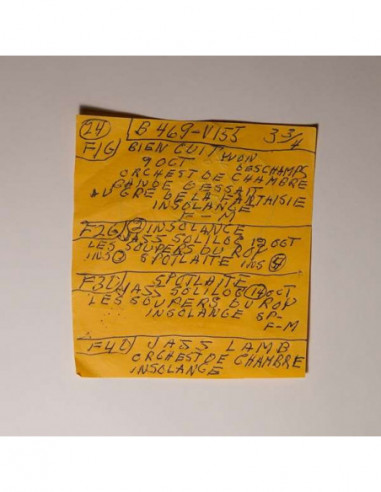 24 B 469-V155 3 3/4
F1G BIEN CUIT YVON
9 OCT DESCHAMPS
ORCHEST DE CHAMBRE
BANDE D ESSAIT
AU GRE DE LA FANTAISIE
INSOLANGE
F-M
F2G INSOLANCE
JASS SOLILOQ 12 OCT
LES SOUPERS DU ROY
INSO SPOTLAITE INS
F3D SPOTLAITE
JASS SOLILOQ 14 OCT
LES SOUPERS DU ROY
INSOLANGE SP-
F-M
F4D JASS LAMB
ORCHEST DE CHAMBRE
INSOLANGE